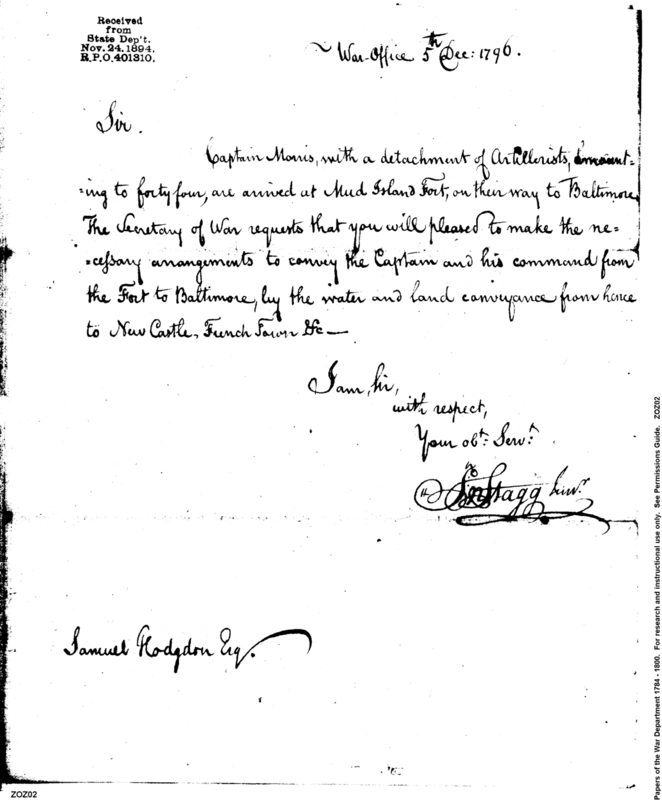 Received
from
State Dep't.
Nov. 24. 1894.
R.P.O. 401310.
War-Office 5th Dec: 1796.
Sir.
Captain Morris, with a detachment of Artillerists, amount=
=ing to forty four, are arrived at Mud Island Fort, on their way to Baltimore
The Secretary of War requests that you will pleased to make the ne=
=cessary arrangements to convey the Captain and his command from
the Fort to Baltimore, by the water and land conveyance from hence
to New Castle, French Town &c—
I am, Sir,
with respect,
Your obt. Servt.
Jno Stagg Junr.
Samuel Hodgdon Esq.
ZOZ02
Papers of the War Department 1784 - 1800. For research and instructional use only. See Permissions Guide. ZOZ02